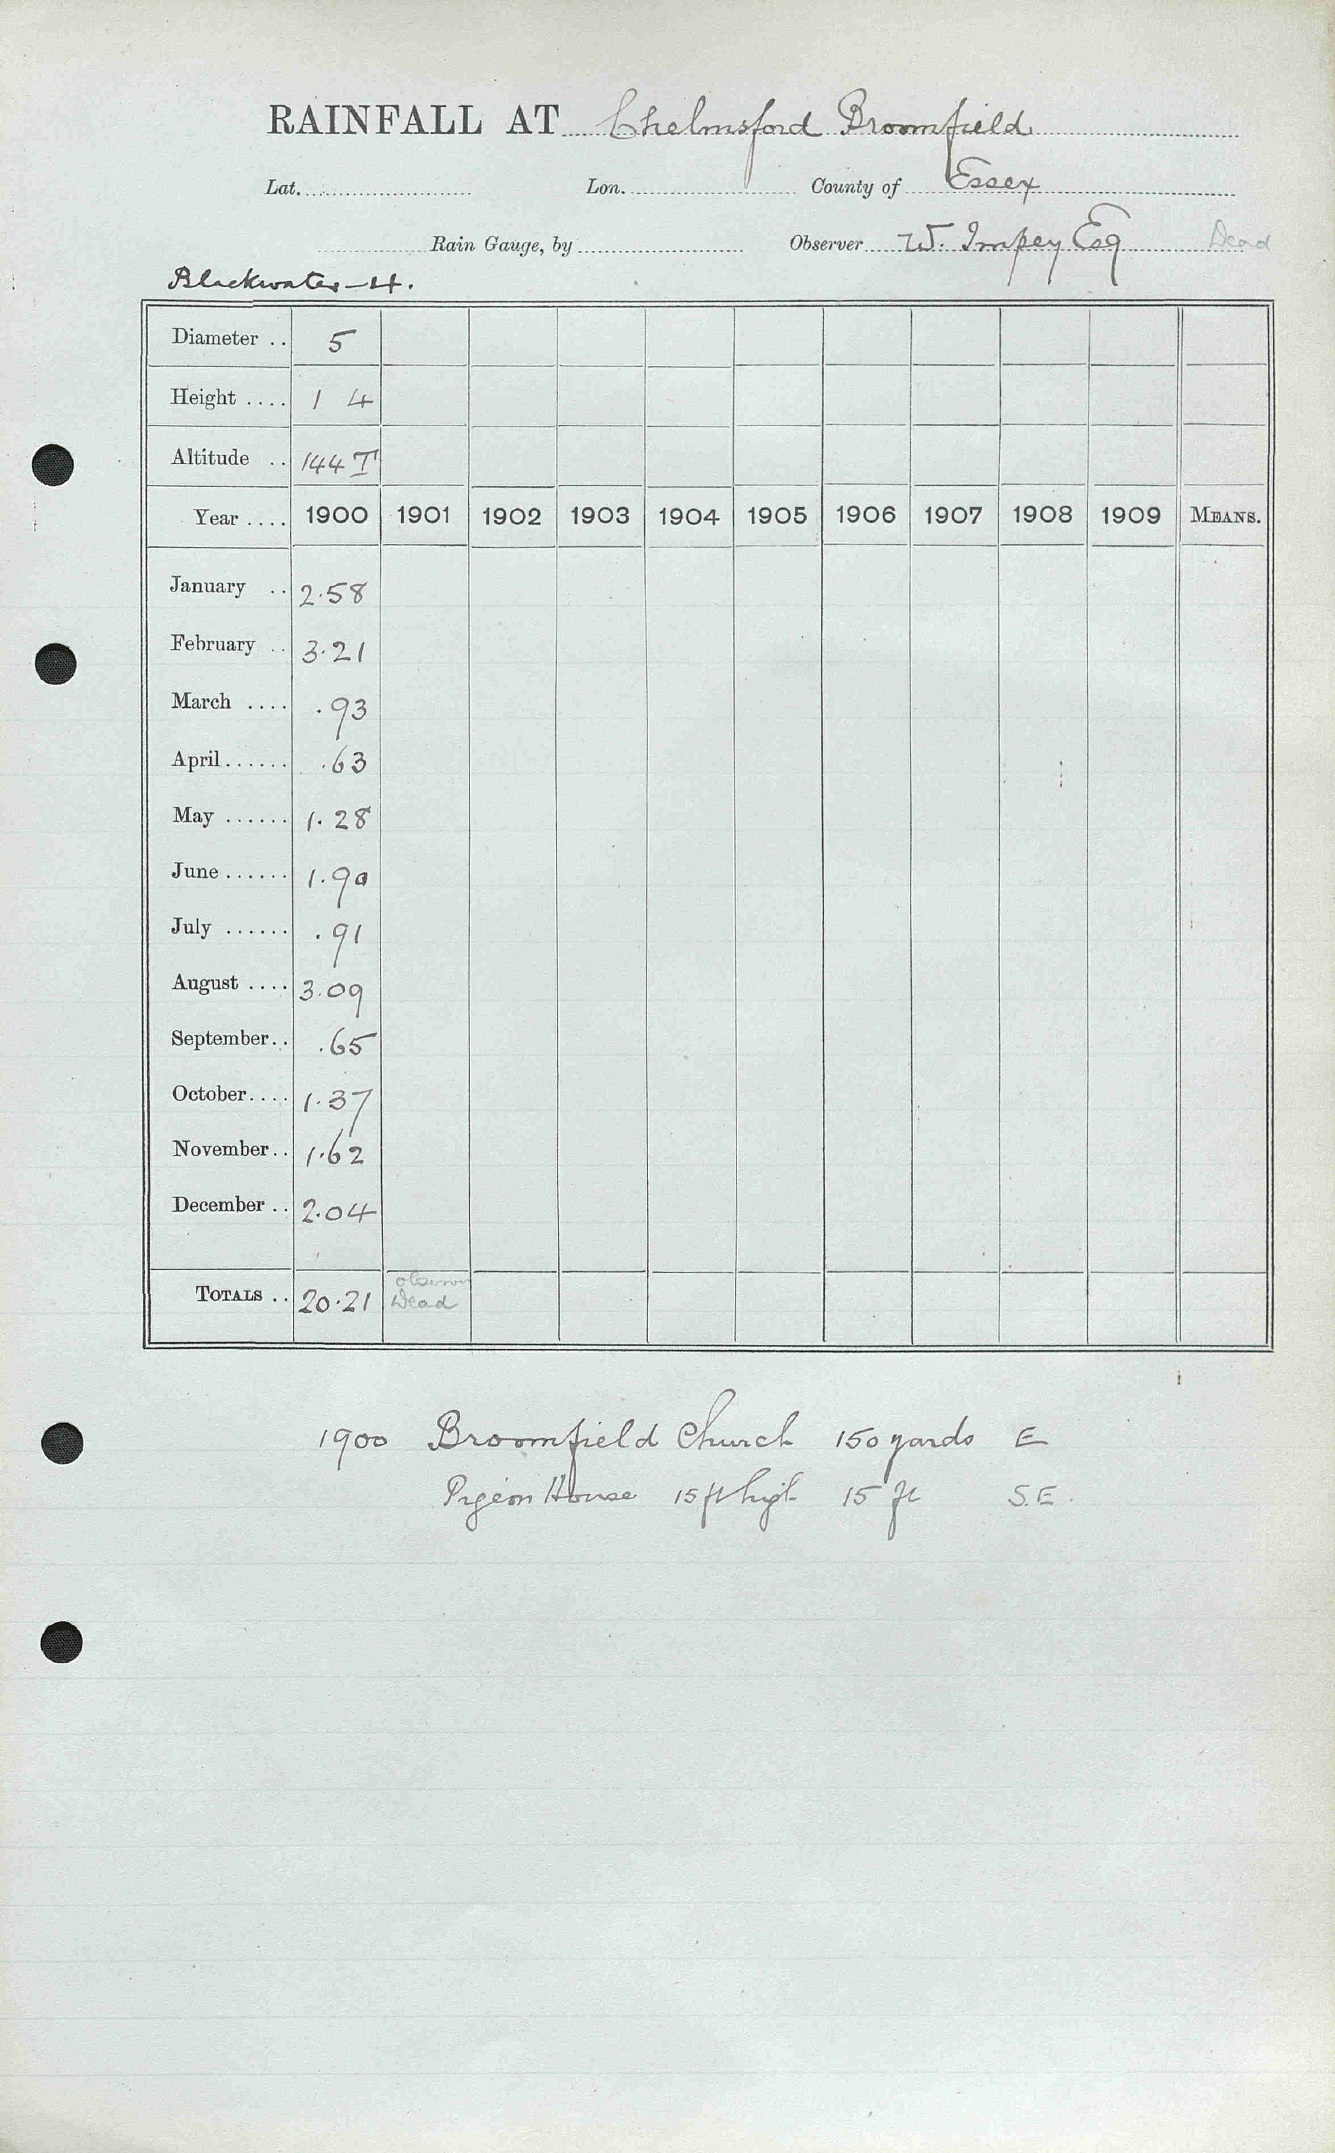 RAINFALL AT Chelmsford Broomfield
Lat. Lon. County of Essex
Rain Gauge, by Observer W. Impey Esq Dead
Blackwater—4.
Diameter .. 5
Height .... 1 4
Altitude .. 144 T
Year .... 1900 1901 1902 1903 1904 1905 1906 1907 1908 1909 MEANS.
January .. 2.58
February .. 3.21
March .... .93
April...... .63
May ...... 1.28
June...... 1.90
July ...... .91
August .... 3.09
September.. .65
October.... 1.37
November.. 1.62
December .. 2.04
observer
TOTALS .. 20.21 Dead
1900 Broomfield Church 150 yards E
Pigeon House 15 ft high 15 ft S.E.